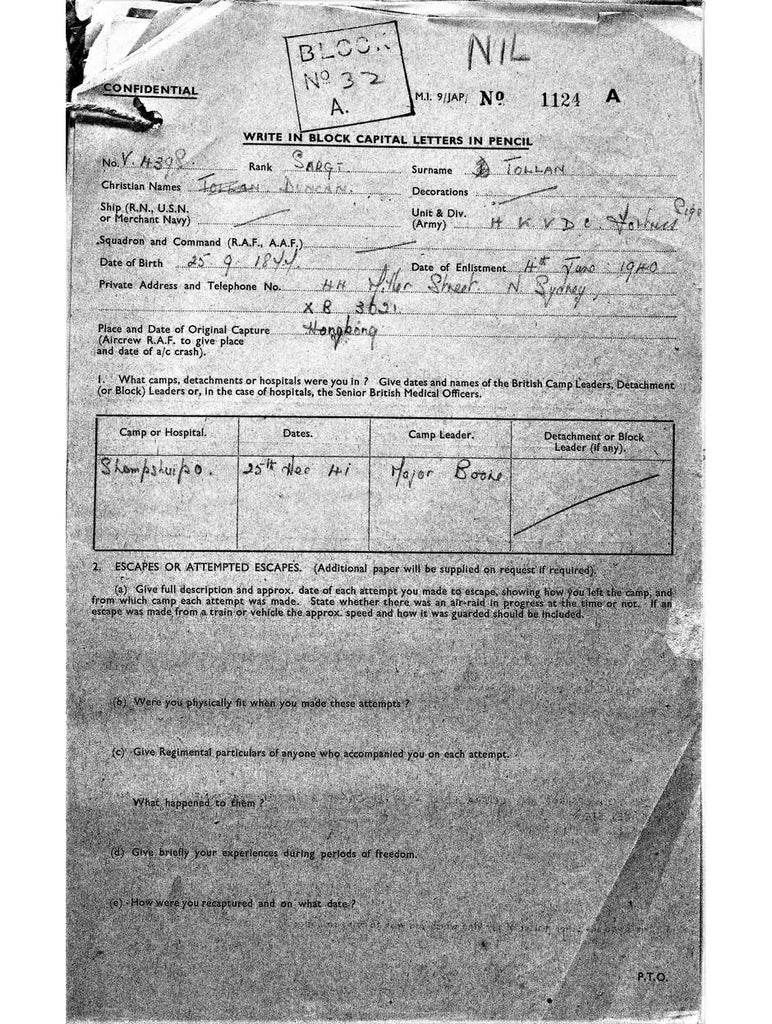 BLOCK
Nº 32
A.
NIL
CONFIDENTIAL
M.I. 9/JAP/ Nº 1124 A
WRITE IN BLOCK CAPITAL LETTERS IN PENCIL
No. V. 4398. Rank SARGT Surname TOLLAN
Christian Names TOLLAN DUNCAN. Decorations
Ship (R.N., U.S.N.
or Merchant Navy)
Unit & Div.
(Army) H K V D C. Fortress Sigs
Squadron and Command (R.A.F., A.A.F.)
Date of Birth 25 9 Date of Enlistment 4th June 1940
Private Address and Telephone No. 44 Miller Street N. Sydney,
X B 3621.
Place and Date of Original Capture Hongkong
(Aircrew R.A.F. to give place
and date of a/c crash).
1. What camps, detachments or hospitals were you in ? Give dates and names of the British Camp Leaders, Detachment
(or Block) Leaders or, in the case of hospitals, the Senior British Medical Officers.
Camp or Hospital. Dates. Camp Leader. Detachment or Block
Leader (if any).
Shampshuipo. 25th Dec 41 Major Boone
2. ESCAPES OR ATTEMPTED ESCAPES. (Additional paper will be supplied on request if required).
(a) Give full description and approx. date of each attempt you made to escape, showing how you left the camp, and
from which camp each attempt was made. State whether there was an air-raid in progress at the time or not. If an
escape was made from a train or vehicle the approx. speed and how it was guarded should be included.
(b) Were you physically fit when you made these attempts ?
(c) Give Regimental particulars of anyone who accompanied you on each attempt.
What happened to them ?
(d) Give briefly your experiences during periods of freedom.
(e) How were you recaptured and on what date ?
P.T.O.